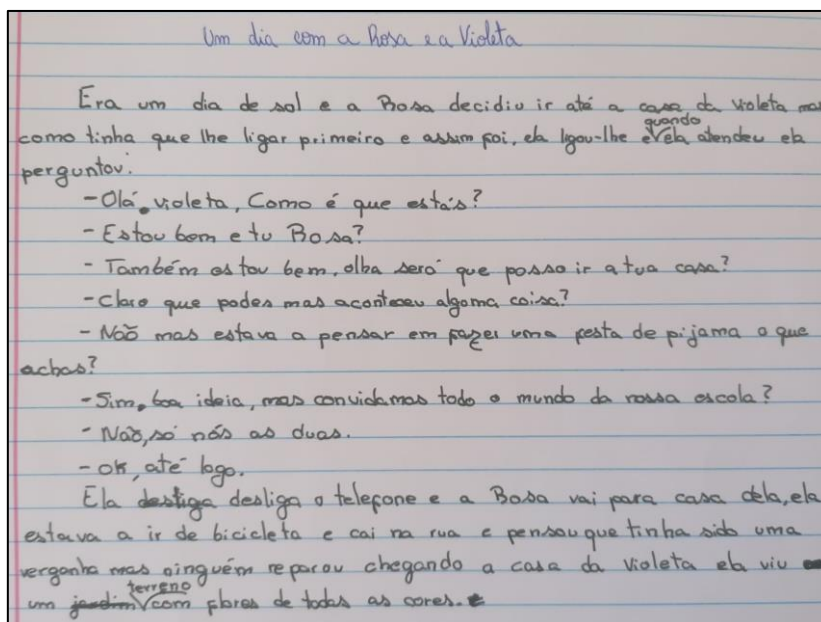 Um dia com a Rosa e a Violeta
Era um dia de sol e a Rosa decidiu ir até a casa da violeta mas
como tinha que lhe ligar primeiro e assim foi, ela ligou-lhe e quando ela atendeu ela
perguntou:
-Olá, violeta, Como é que estás?
-Estou bem e tu Rosa?
-Também estou bem, olha será que posso ir a tua casa?
-Claro que podes mas aconteceu alguma coisa?
-Não mas estava a pensar em fazer uma festa de pijama o que
achas?
-Sim, boa ideia, mas convidamos todo o mundo da nossa escola?
-Não, só nós as duas.
-ok, até logo.
Ela desliga desliga o telefone e a Rosa vai para casa dela, ela
estava a ir de bicicleta e cai na rua e pensou que tinha sido uma
verganha mas ninguém reparou chegando a casa da Violeta ela viu
um jardim terreno com flores de todas as cores.